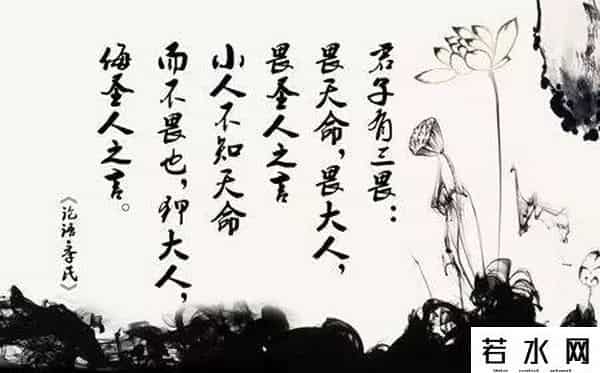 君子有三畏：
畏天命，畏大人，
畏圣人之言
小人不知天命
而不畏也，狎大人，
侮圣人之言。
《论语·季氏》
若水网